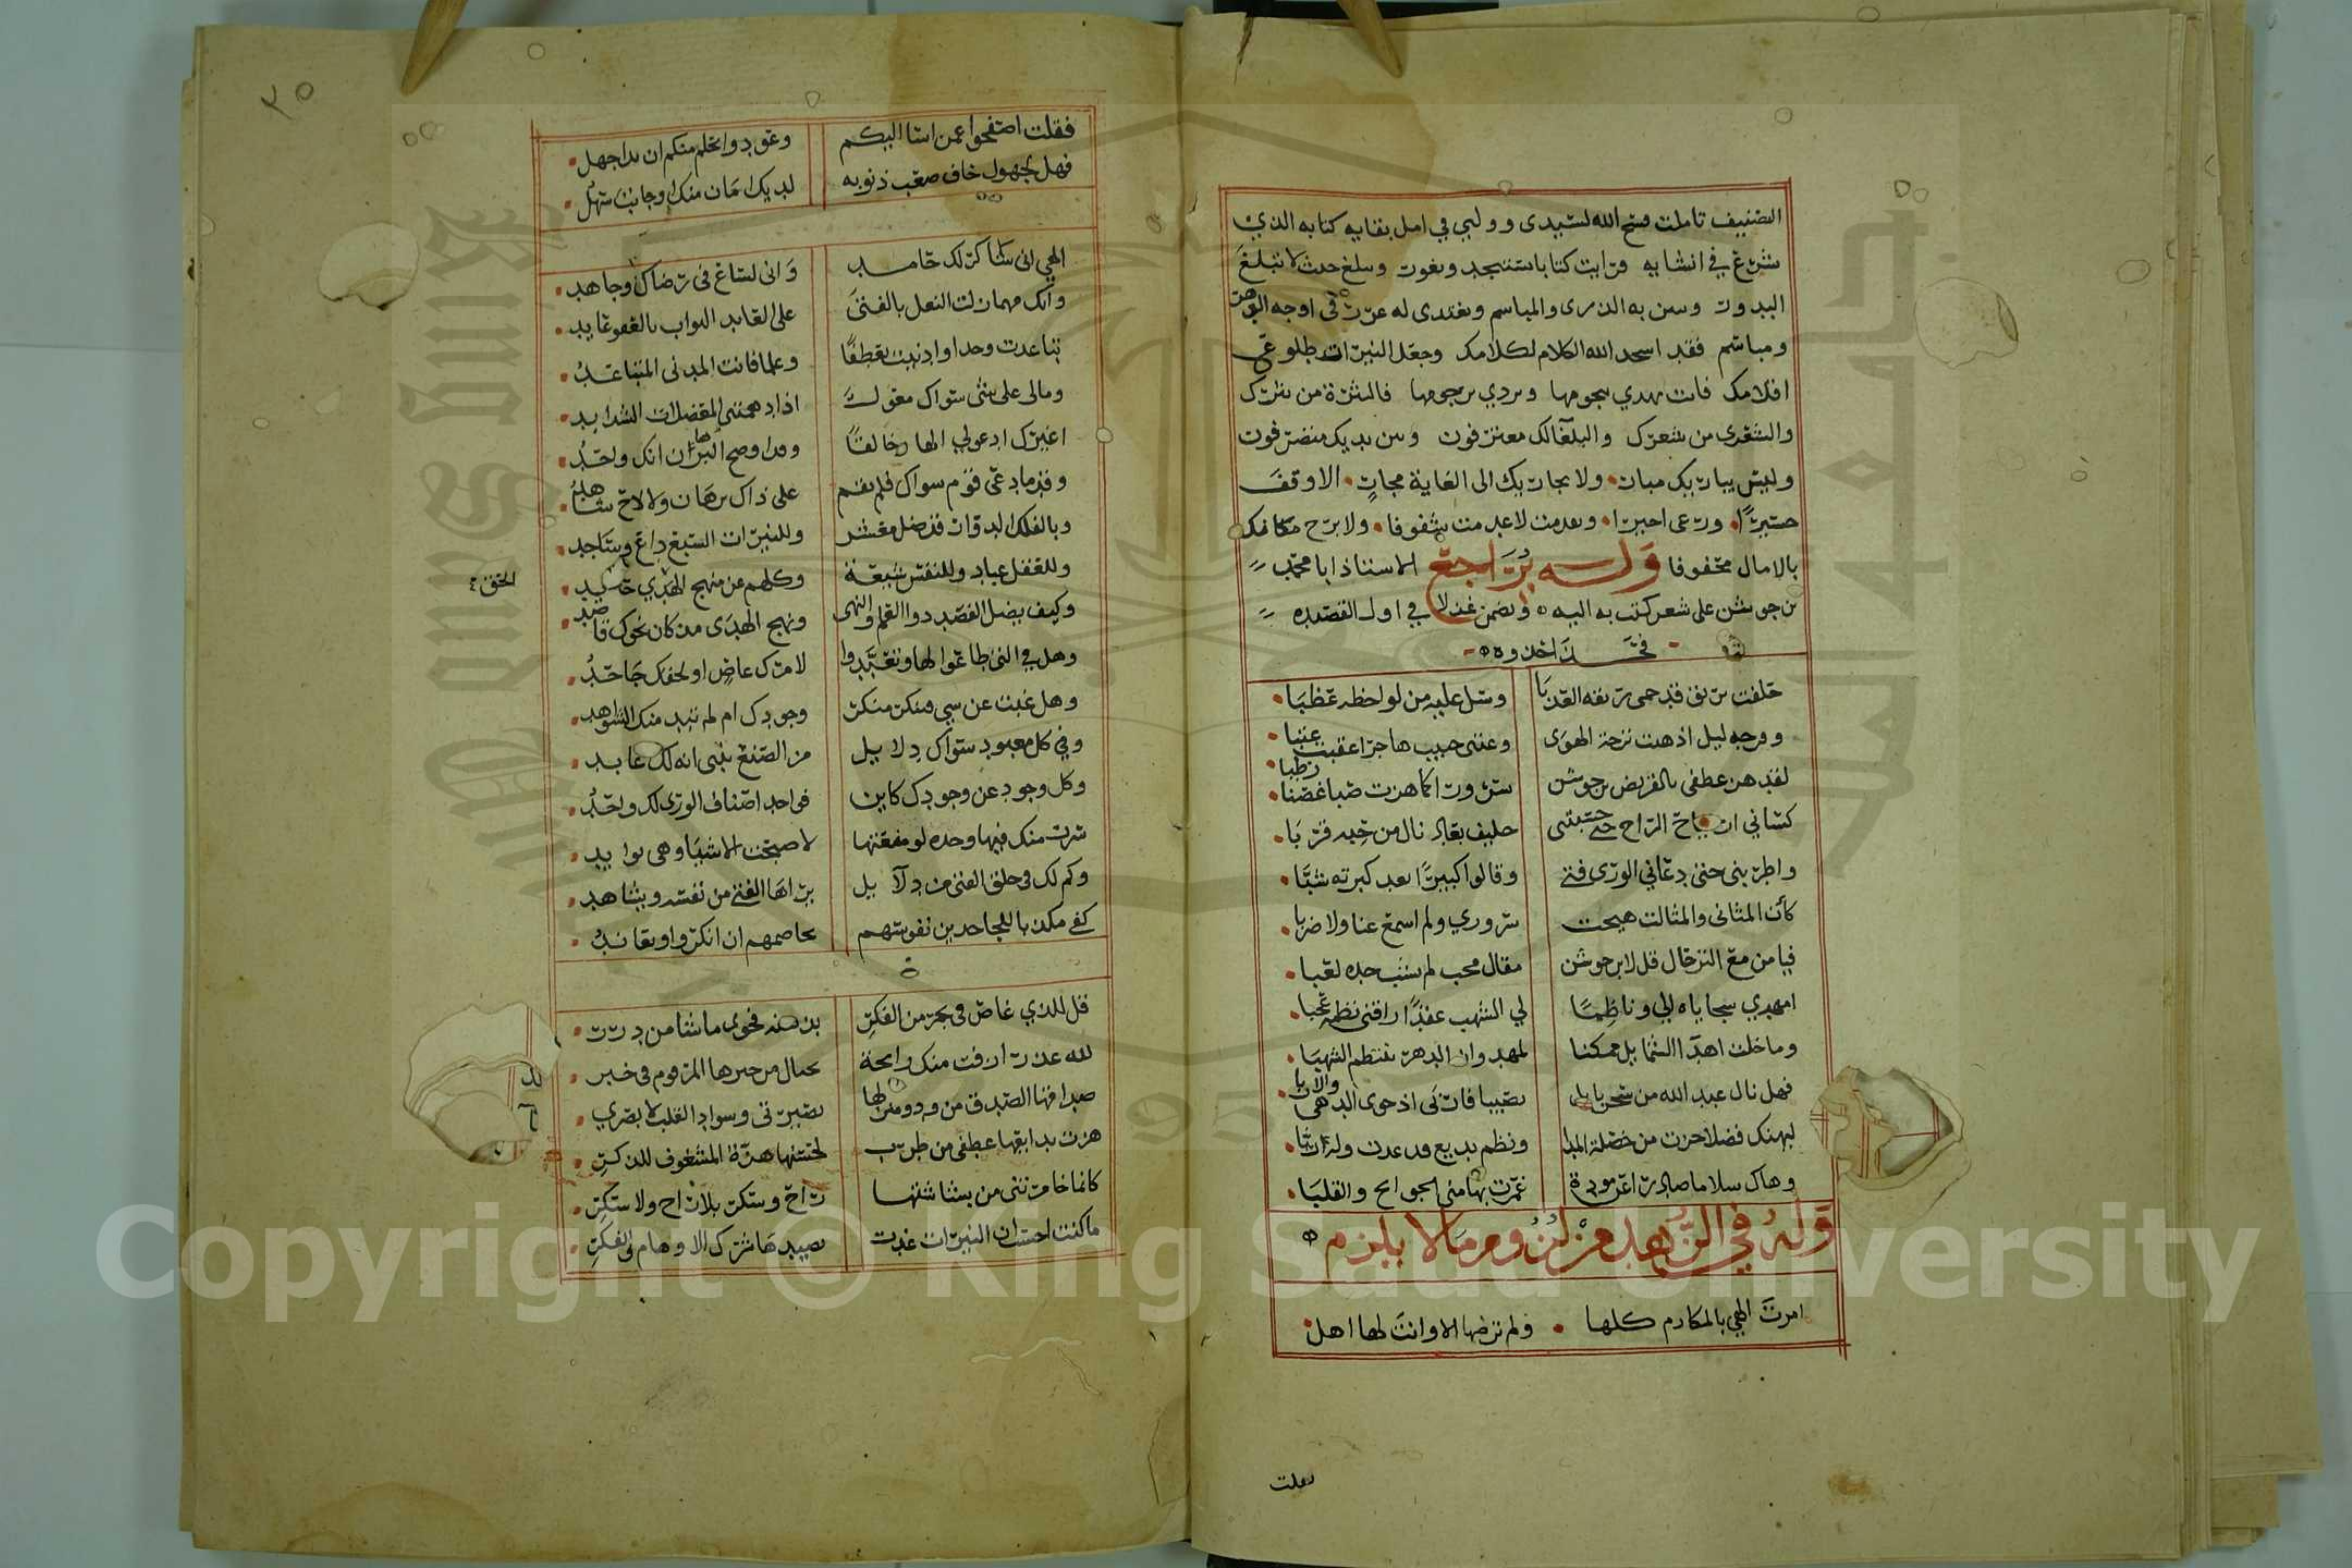 التصنيف تاملت فسح الله لسيدى وولبي في امل بقايه كتابه الذي
شرع في انشايه فرايت كتابا يستنجد ويغور ويبلغ حيث لا تبلغ
البدور وسن به الذرى والمباسم ويغتدى له غرر في اوجه الزهر
ومباسم فقد اسجد الله الكلام لكلامك وجعل النيرات طلوع
اقلامك فانت تهدي بنجومها وتردي برجومها فالنثرة من نثرك
والشعرى من شعرك والبلغا لك معترفون وبين يديك متصرفون
وليس يباريك مبار ولا يجاريك الى الغاية مجار الا وقف
حسيرا ودعى اخيرا وتقدمت لا عدمت شفوفا ولا برح مكانك
بالامال محفوفا وله يراجع الاستاذ ابا محمد
بن جوشن على شعر كتب به اليه وتضمن غزلا في اول القصيده
فحذا حذوه
حلفت بريق قد حمى ريقه العذبا وسل عليه من لواحظه عضبا
ووجه ليل اذهبت نزحة الهوى وعتبى حبيب هاجر اعقبت عتبا
لقد هز عطفى بالقريض بن جوشن سرورا كما هزت صبا غصنا رطبا
كساني ارتياح الراح حتى حسبتنى حليف بعاد نال من حبه قربا
واطربنى حتى دعاني الورى فتى وقالوا كبيرا بعد كبرته شبا
كأن المثانى والمثالث هيجت سروري ولم اسمع غنا ولا ضربا
فيا من مع الترحال قل لابن جوشن مقال محب لم يشب جده لعبا
امهدي سجاياه الي وناظما لي الشهب عقدا راقنى نظمه عجبا
وما خلت اهدا الشمايل ممكنا لمهد وان الدهر ينتظم الشهبا
فهل نال عبد الله من سحر بابل نصيبا فاربى اذ حوى الدهى والاربا
ليهنك فضلا حزت من خصلة المدا ونظم بديع قد غدت وله ربا
وهاك سلاما صادرا عن مودة غمرت بها منى الجوانح والقلبا
وله في الزهد من لزوم ما لا يلزم
امرت الهي بالمكارم كلها ولم ترضها الا وانت لها اهل
فقلت
٣٥
فقلت اصفحوا عمن اسا اليكم وعودوا بحلم منكم ان بدا جهل
فهل لجهول خاف صعب ذنوبه لديك امان منك او جانب سهل
الهي انى شاكر لك حامد وانى لساع فى رضاك وجاهد
وانك مهما زلت النعل بالفتى على العايد التواب بالعفو عايد
تباعدت وجدا وادنيت تعطفا وعلما فانت المدنى المتباعد
ومالى على شى سواك معول اذا دهمتنى المعضلات الشدايد
اغيرك ادعولي الها وخالقا وقد اوضح البرهان انك واحد
وقدما دعى قوم سواك فلم يقم على ذاك برهان ولا لاح شاهد
وبالفلك الدوار قد ضل معشر وللنيرات السبع داع وساجد
وللعقل عباد وللنفس شيعة وكلهم عن منهج الهدي حايد
الحق ٤
وكيف يضل القصد ذوا العلم والنهى ونهج الهدى من كان نحوك قاصد
وهل في التى طاعوا لها وتعبدوا لامرك عاص او لحقك جاحد
وهل غبت عن شي فينكر منكر وجودك ام لم تبد منك الشواهد
وفي كل معبود سواك دلايل من الصنع تنبى انه لك عابد
وكل وجود عن وجودك كاين فواجد اصناف الورى لك واحد
سرت منك فيها وحده لو منعتها لاصبحت الاشيا وهى بوايد
وكم لك فى خلق الفتى من دلايل يراها الفتى من نفسه ويشاهد
كفى مكذبا للجاحدين نفوسهم تخاصمهم ان انكروا وتعاند
قل للذي غاص فى بحر من الفكر بذهنه فحوى ما شا من درر
لله عذرا زفت منك رايحة تختال من حبرها المرقوم فى حبر
صداقها الصدق من ودى ومنزلها بصيرتى وسواد القلب لا بصري
هزت بدايعها عطفى من طرب لحسنها هزة المشغوف للذكر
كانما خامرتنى من بشاشتها راح وسكر بلا راح ولا سكر
ما كنت احسب ان النيرات غدت يصيدها شرك الاوهام فى الفكر
Copyright © King Saud University